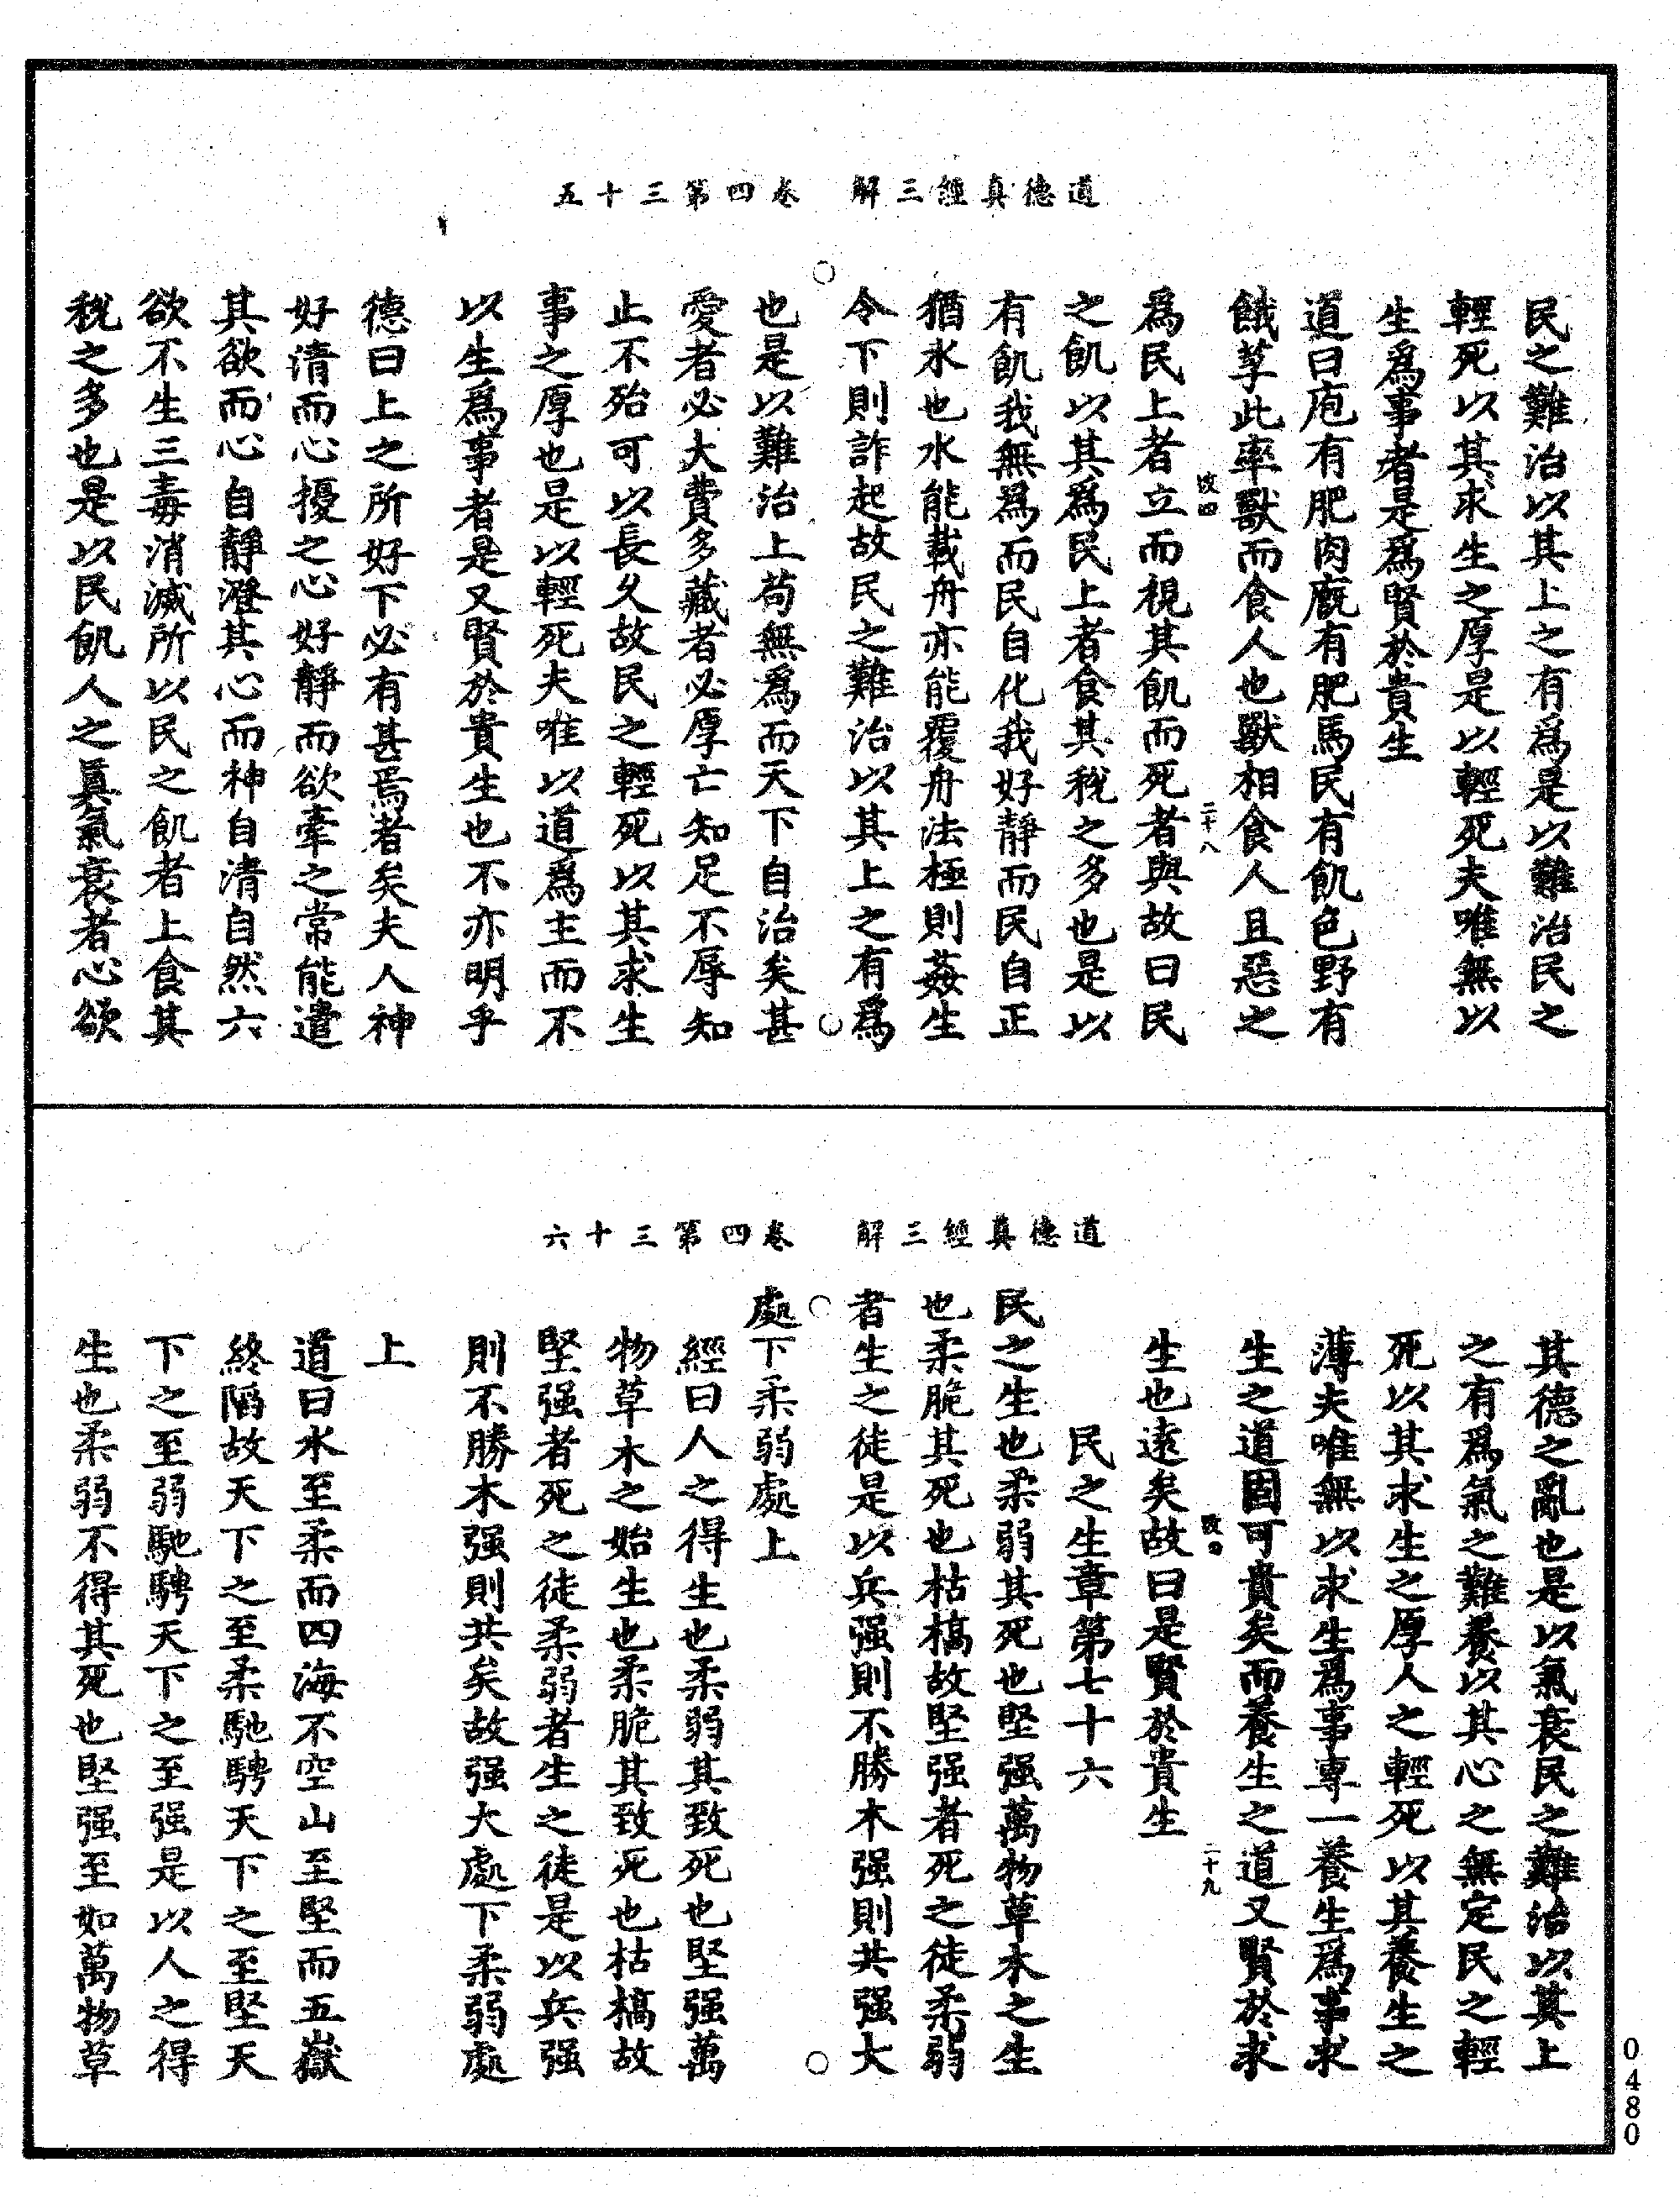 道德真經三解　卷四第三十五
民之難治以其上之有爲是以難治民之
輕死以其求生之厚是以輕死夫唯無以
生爲事者是爲賢於貴生
道曰庖有肥肉廐有肥馬民有飢色野有
餓莩此率獸而食人也獸相食人且惡之
改四　二十八
爲民上者立而視其飢而死者與故曰民
之飢以其爲民上者食其稅之多也是以
有飢我無爲而民自化我好靜而民自正
猶水也水能載舟亦能覆舟法極則姦生
令下則詐起故民之難治以其上之有爲
也是以難治上苟無爲而天下自治矣甚
愛者必大費多藏者必厚亡知足不辱知
止不殆可以長久故民之輕死以其求生
事之厚也是以輕死夫唯以道爲主而不
以生爲事者是又賢於貴生也不亦明乎
德曰上之所好下必有甚焉者矣夫人神
好清而心擾之心好靜而欲牽之常能遣
其欲而心自靜澄其心而神自清自然六
欲不生三毒消滅所以民之飢者上食其
稅之多也是以民飢人之真氣衰者心欲
道德真經三解　卷四第三十六
其德之亂也是以氣衰民之難治以其上
之有爲氣之難養以其心之無定民之輕
死以其求生之厚人之輕死以其養生之
薄夫唯無以求生爲事專一養生爲事求
生之道固可貴矣而養生之道又賢於求
改四　二十九
生也遠矣故曰是賢於貴生
民之生章第七十六
民之生也柔弱其死也堅强萬物草木之生
也柔脆其死也枯槁故堅强者死之徒柔弱
者生之徒是以兵强則不勝木强則共强大
處下柔弱處上
經曰人之得生也柔弱其致死也堅强萬
物草木之始生也柔脆其致死也枯槁故
堅强者死之徒柔弱者生之徒是以兵强
則不勝木强則共矣故强大處下柔弱處
上
道曰水至柔而四海不空山至堅而五嶽
終隳故天下之至柔馳騁天下之至堅天
下之至弱馳騁天下之至强是以人之得
生也柔弱不得其死也堅强至如萬物草
0480